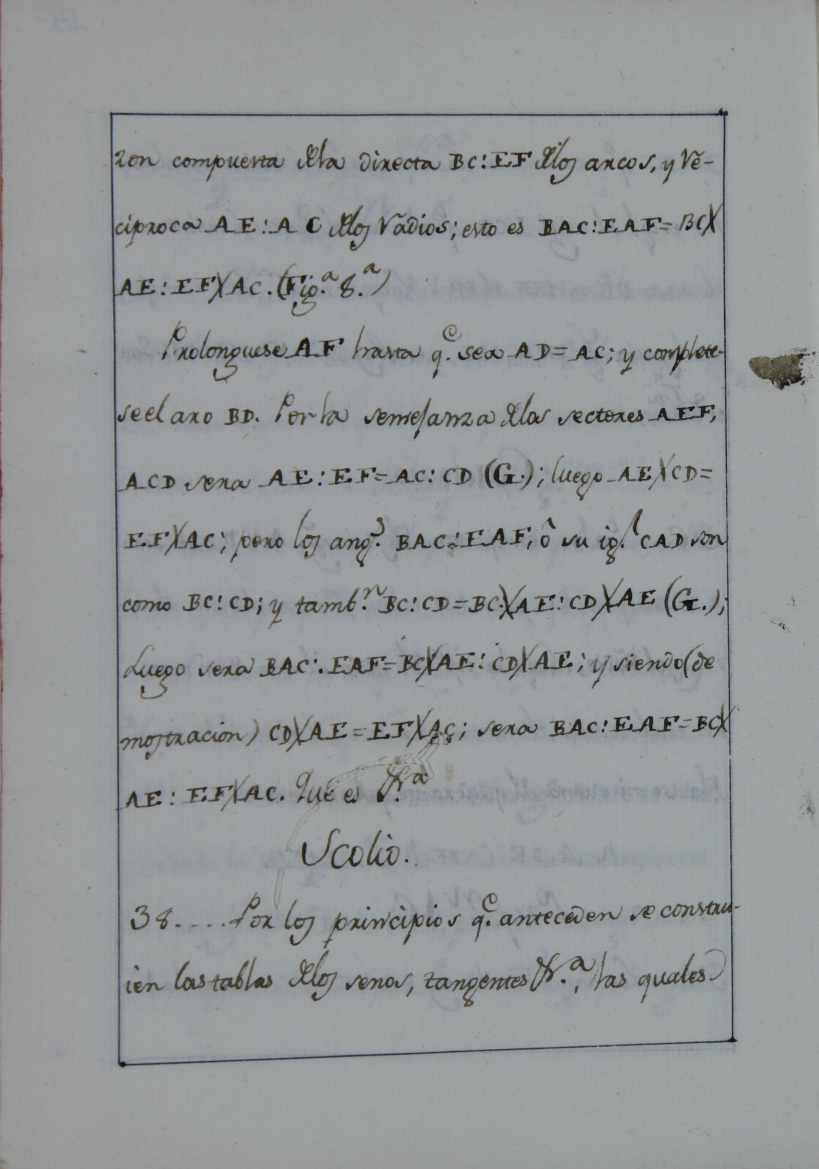 zon compuesta dela directa BC:EF delos arcos, y Re-
ciproca AE:AC delos Radios; esto es BAC:EAF=BC×
AE:EF×AC. (Fig.ª 8.ª)
Prolonguese AF hasta q.e sea AD=AC; y complete-
se el arco BD. Por la semejanza delas sectores AEF,
ACD sera AE:EF=AC:CD (G.); luego AE×CD=
EF×AC; pero los ang.s BAC:EAF, ô su ig.l CAD son
como BC:CD; y tamb.n BC:CD=BC×AE:CD×AE (G.);
Luego sera BAC:EAF=BC×AE:CD×AE; y siendo (de
mostracion) CD×AE=EF×AC; sera BAC:EAF=BC×
AE:EF×AC. Que es &.ª
Scolio.
38.... Por los principios q.e anteceden se constru-
ien las tablas delos senos, tangentes &.ª, las quales